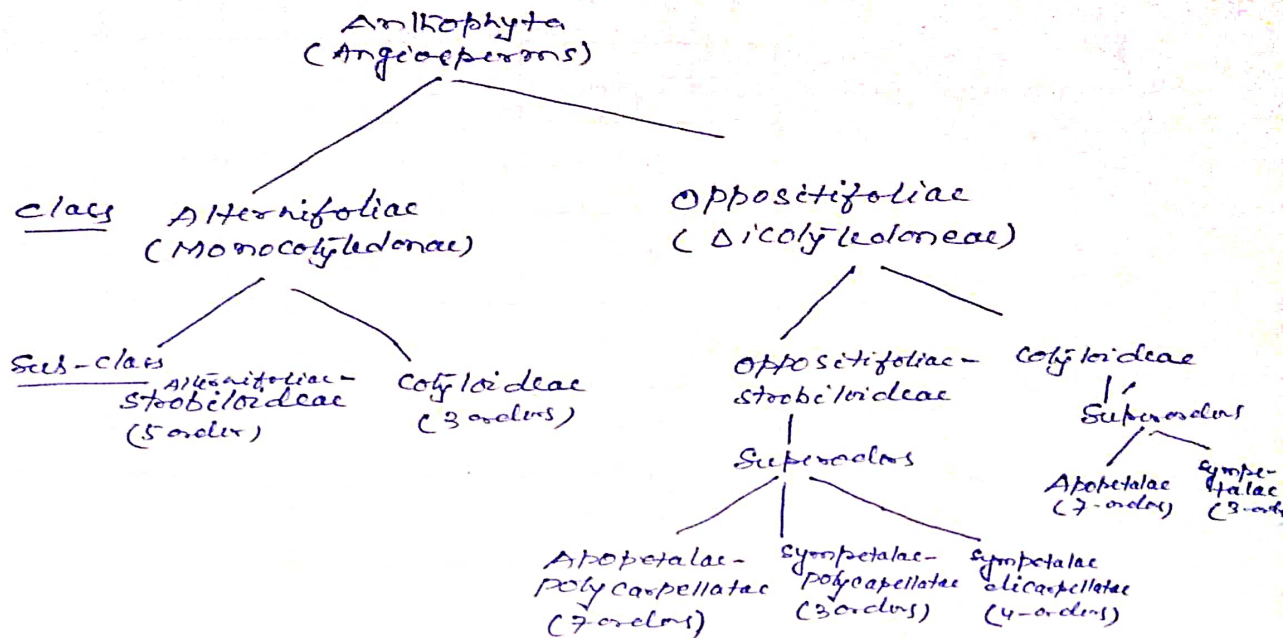 Anthophyta
(Angiosperms)
class
Alternifoliae
(Monocotyledonae)
Oppositifoliae
(Dicotyledoneae)
Sub-class
Alternifoliae-
Strobiloideae
(5 order)
Cotyloideae
(3 orders)
Oppositifoliae-
Strobiloideae
Superoders
Cotyloideae
Superorders
Apopetalae
(7-orders)
Sympe-
talae
(3-ord
Apopetalae-
polycarpellatae
(7 orders)
Sympetalae-
polycapellatae
(3 orders)
Sympetalae
dicarpellatae
(4-orders)